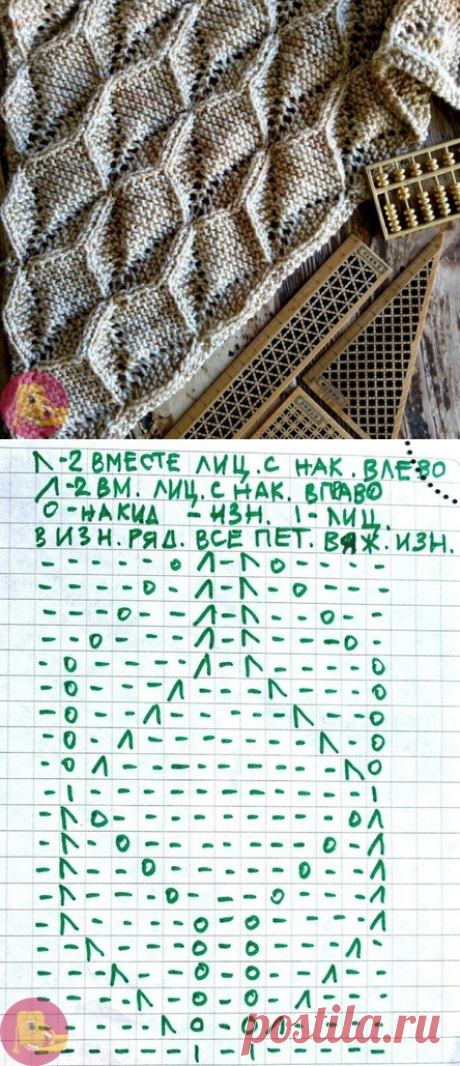 -2 ВМЕСТЕ ЛИЦ. С НАК. ВЛЕВО
-2 ВМ. ЛИЦ. С НАК. ВПРАВО
О-НАКИД - ИЗН. I- ЛИЦ.
В ИЗН. РЯД. ВСЕ ПЕТ. ВЯЖ. ИЗН.
postila.ru